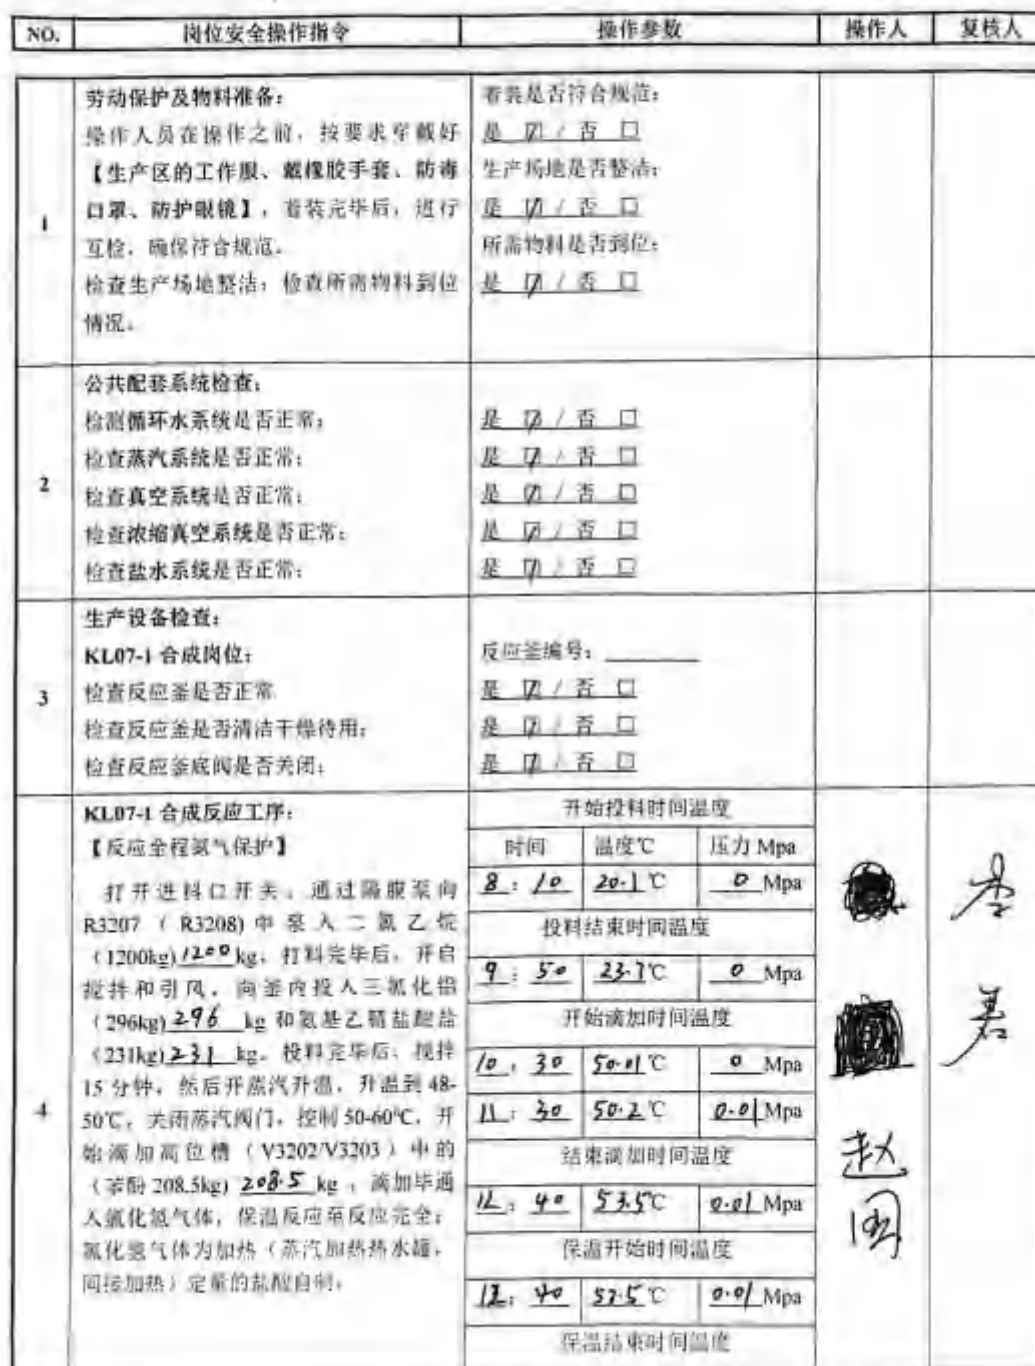 NO. 岗位安全操作指令 操作参数 操作人 复核人
1
劳动保护及物料准备：
操作人员在操作之前，按要求穿戴好
【生产区的工作服、戴橡胶手套、防毒
口罩、防护眼镜】，着装完毕后，进行
互检，确保符合规范。
检查生产场地整洁；检查所需物料到位
情况。
着装是否符合规范：
是 ☑ / 否 □
生产场地是否整洁：
是 ☑ / 否 □
所需物料是否到位：
是 ☑ / 否 □
2
公共配套系统检查：
检测循环水系统是否正常； 是 ☑ / 否 □
检查蒸汽系统是否正常； 是 ☑ / 否 □
检查真空系统是否正常； 是 ☑ / 否 □
检查浓缩真空系统是否正常； 是 ☑ / 否 □
检查盐水系统是否正常； 是 ☑ / 否 □
3
生产设备检查：
KL07-1 合成岗位： 反应釜编号：
检查反应釜是否正常 是 ☑ / 否 □
检查反应釜是否清洁干燥待用； 是 ☑ / 否 □
检查反应釜底阀是否关闭； 是 ☑ / 否 □
4
KL07-1 合成反应工序：
【反应全程氮气保护】
打开进料口开关，通过隔膜泵向
R3207 （ R3208) 中泵入二氯乙烷
（1200kg) 1200 kg，打料完毕后，开启
搅拌和引风，向釜内投入三氯化铝
（296kg) 296 kg 和氨基乙腈盐酸盐
（231kg) 231 kg。投料完毕后，搅拌
15 分钟，然后开蒸汽升温，升温到 48-
50℃，关闭蒸汽阀门，控制 50-60℃，开
始滴加高位槽（V3202/V3203）中的
（苯酚 208.5kg) 208.5 kg ，滴加毕通
入氯化氢气体，保温反应至反应完全；
氯化氢气体为加热（蒸汽加热热水罐，
间接加热）定量的盐酸自制。
开始投料时间温度
时间 温度℃ 压力 Mpa
8：10 20.1 ℃ 0 Mpa
投料结束时间温度
9：50 23.7℃ 0 Mpa
开始滴加时间温度
10：30 50.01℃ 0 Mpa
11：30 50.2℃ 0.01 Mpa
结束滴加时间温度
12：40 53.5℃ 0.01 Mpa
保温开始时间温度
12：40 53.5℃ 0.01 Mpa
保温结束时间温度
赵